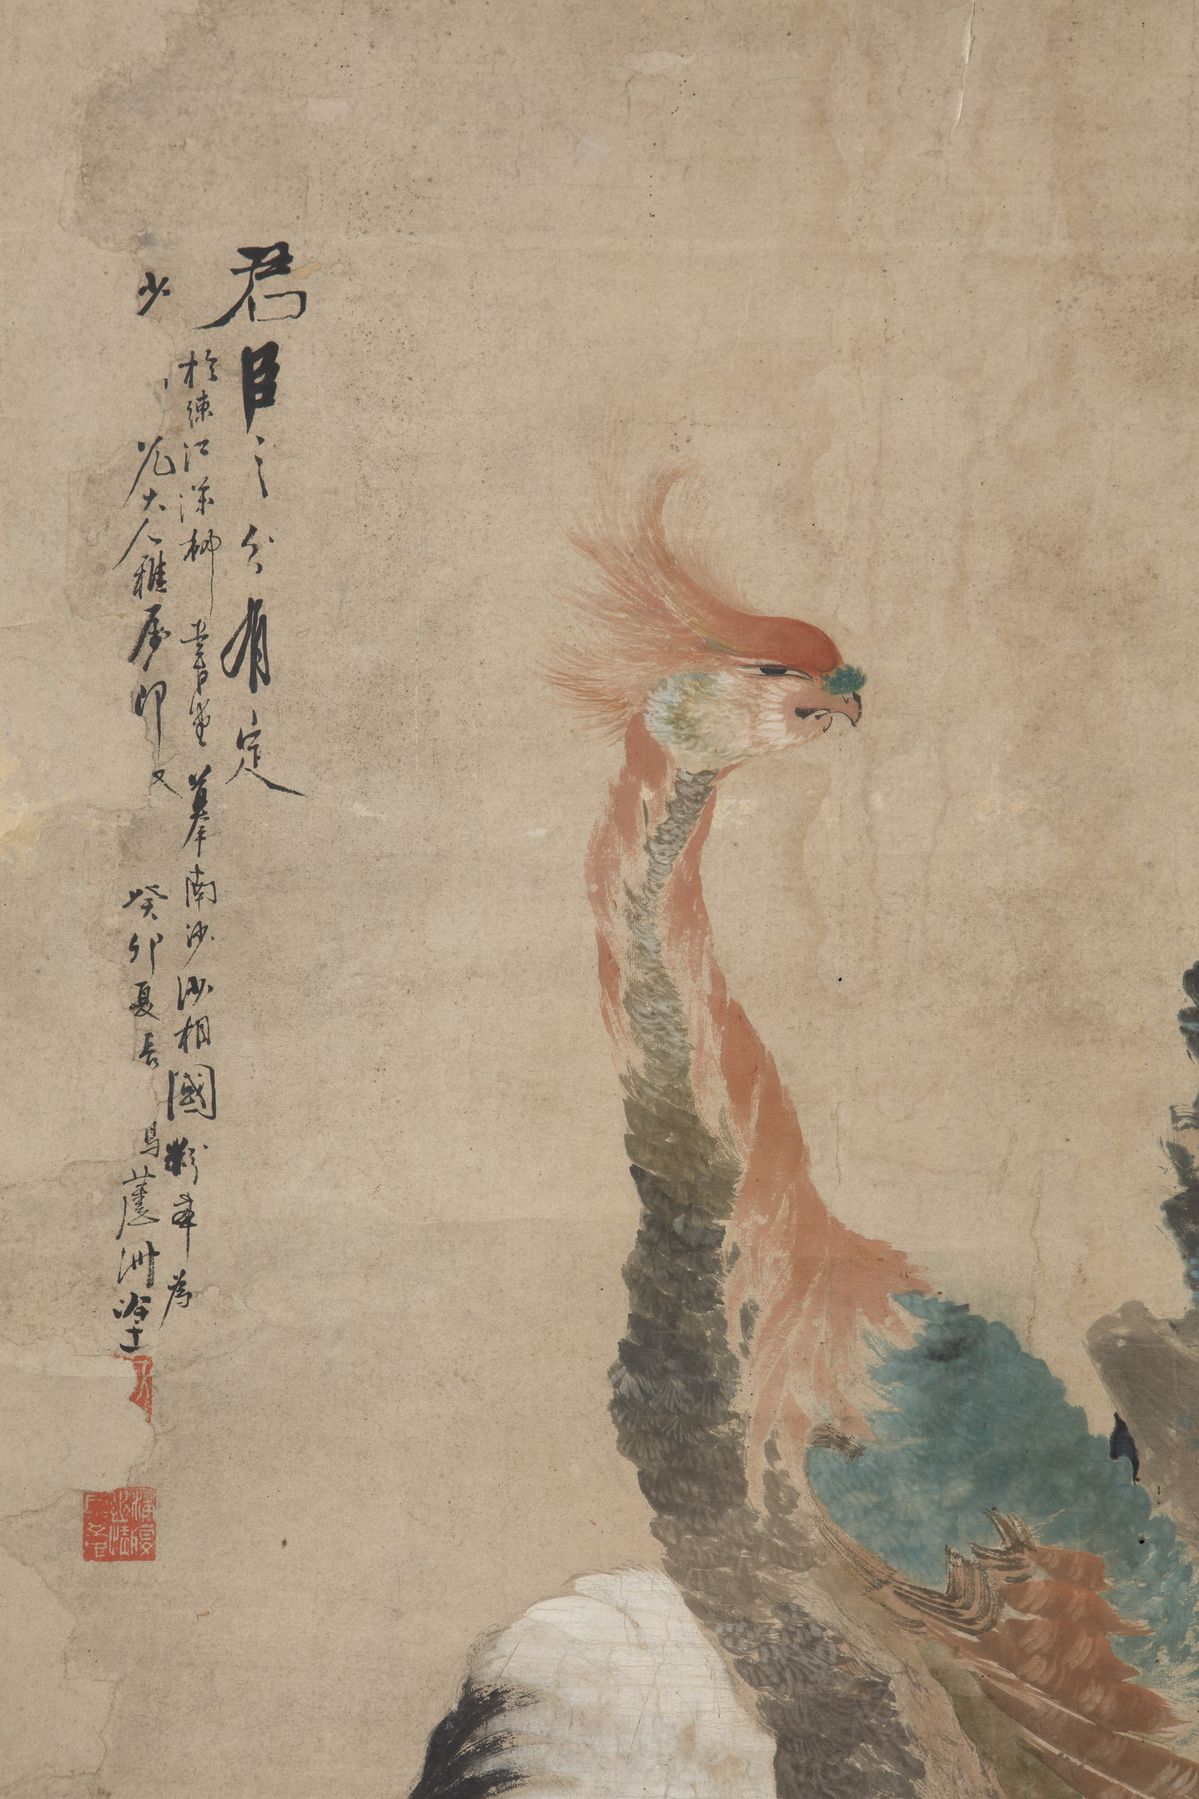 君臣之分有定
於練江深柳書堂摹南沙沙相國粉本為
少
花大人雅屬即又
癸卯夏長馬蘆洲塗